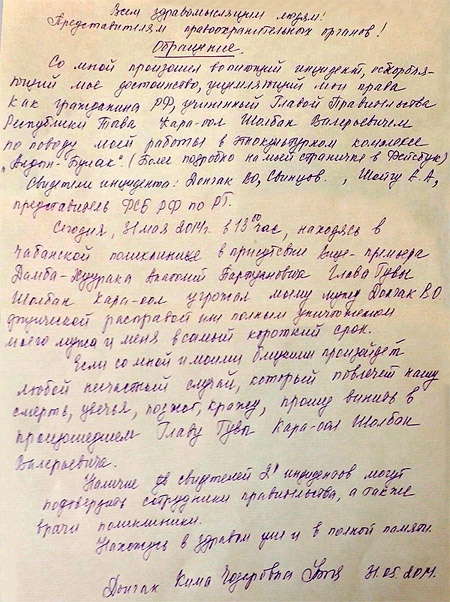 Всем здравомыслящим людям!
Представителям правоохранительных органов!
Обращение.
Со мной произошел вопиющий инцидент, оскорбля-
ющий мое достоинство, ущемляющий мои права
как гражданина РФ, учиненный Главой Правительства
Республики Тыва Кара-оол Шолбан Валерьевичем
по поводу моей работы в этнокультурном комплексе
„Алдын-Булак". (Более подробно на моей страничке в Фейсбук)
Свидетели инцидента: Донгак ВО, Свинцов. , Шойгу С.А,
представитель ФСБ РФ по РТ.
Сегодня, 31 мая 2014г. в 13 00 час, находясь в
Чабанской поликлинике в присутствие вице-премьера
Дамба-Хуурака Анатолий Глава Тувы
Шолбан Кара-оол угрожал моему мужу Донгак В.О
физической расправой или полным уничтожением
моего мужа и меня в самый короткий срок.
Если со мной и моими близкими произойдет
любой несчастный случай, который повлечет нашу
смерть, увечья, поджог, кражу, прошу винить в
произошедшем Главу Тувы Кара-оол Шолбан
Валерьевича.
Наличие свидетелей 2х инцидентов могут
подтвердить сотрудники правительства, а также
врачи поликлиники.
Нахожусь в здравом уме и в полной памяти.
Донгак Кима 31.05.2014.